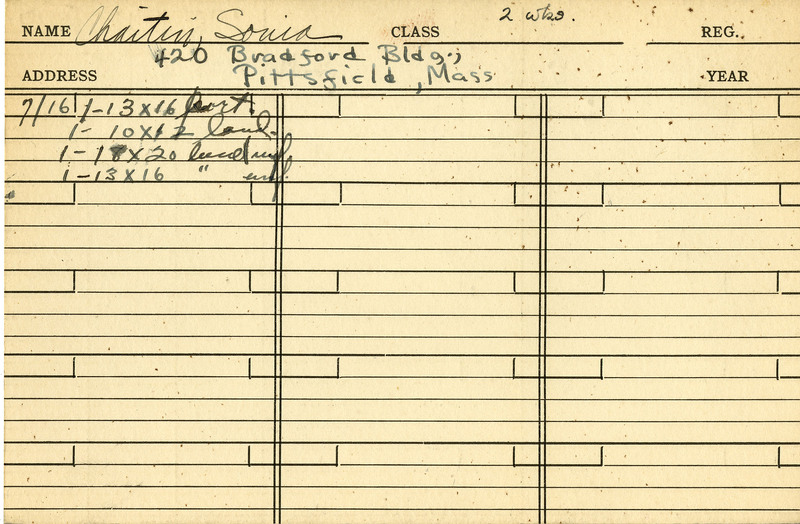 NAME Chaitin, Sonia CLASS 2 wks. REG.
420 Bradford Bldg.,
ADDRESS Pittsfield, Mass YEAR
7/16 1-13x16 port.
1- 10x12 land.
1-18x20 land unf.
1-13x16 " unf.